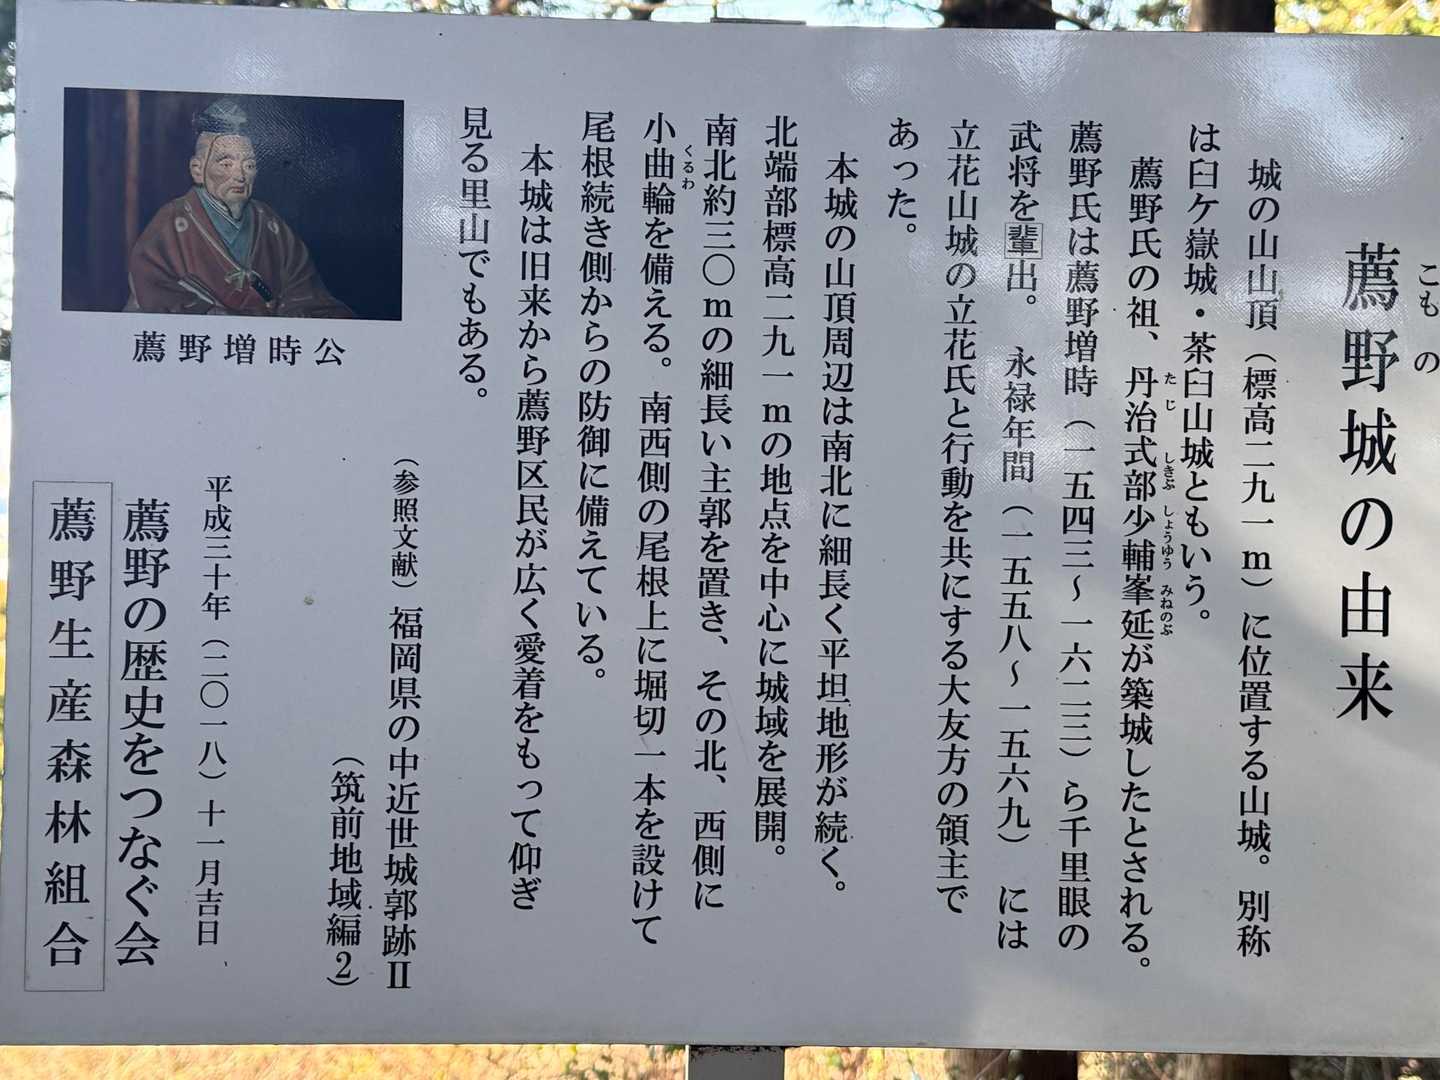 薦野城の由来
こものの
城の山山頂（標高二九一m）に位置する山城。別称
は臼ケ嶽城・茶臼山城ともいう。
薦野氏の祖、丹治式部少輔峯延が築城したとされる。
たじ しきぶ しょうゆう みねのぶ
薦野氏は薦野増時（一五四三〜一六二三）ら千里眼の
武将を輩出。永禄年間（一五五八〜一五六九）には
立花山城の立花氏と行動を共にする大友方の領主で
あった。
本城の山頂周辺は南北に細長く平坦地形が続く。
北端部標高二九一mの地点を中心に城域を展開。
南北約三〇mの細長い主郭を置き、その北、西側に
小曲輪を備える。南西側の尾根上に堀切一本を設けて
くるわ
尾根続き側からの防御に備えている。
本城は旧来から薦野区民が広く愛着をもって仰ぎ
見る里山でもある。
（参照文献）福岡県の中近世城郭跡Ⅱ
（筑前地域編2）
薦野増時公
平成三十年（二〇一八）十一月吉日
薦野の歴史をつなぐ会
薦野生産森林組合